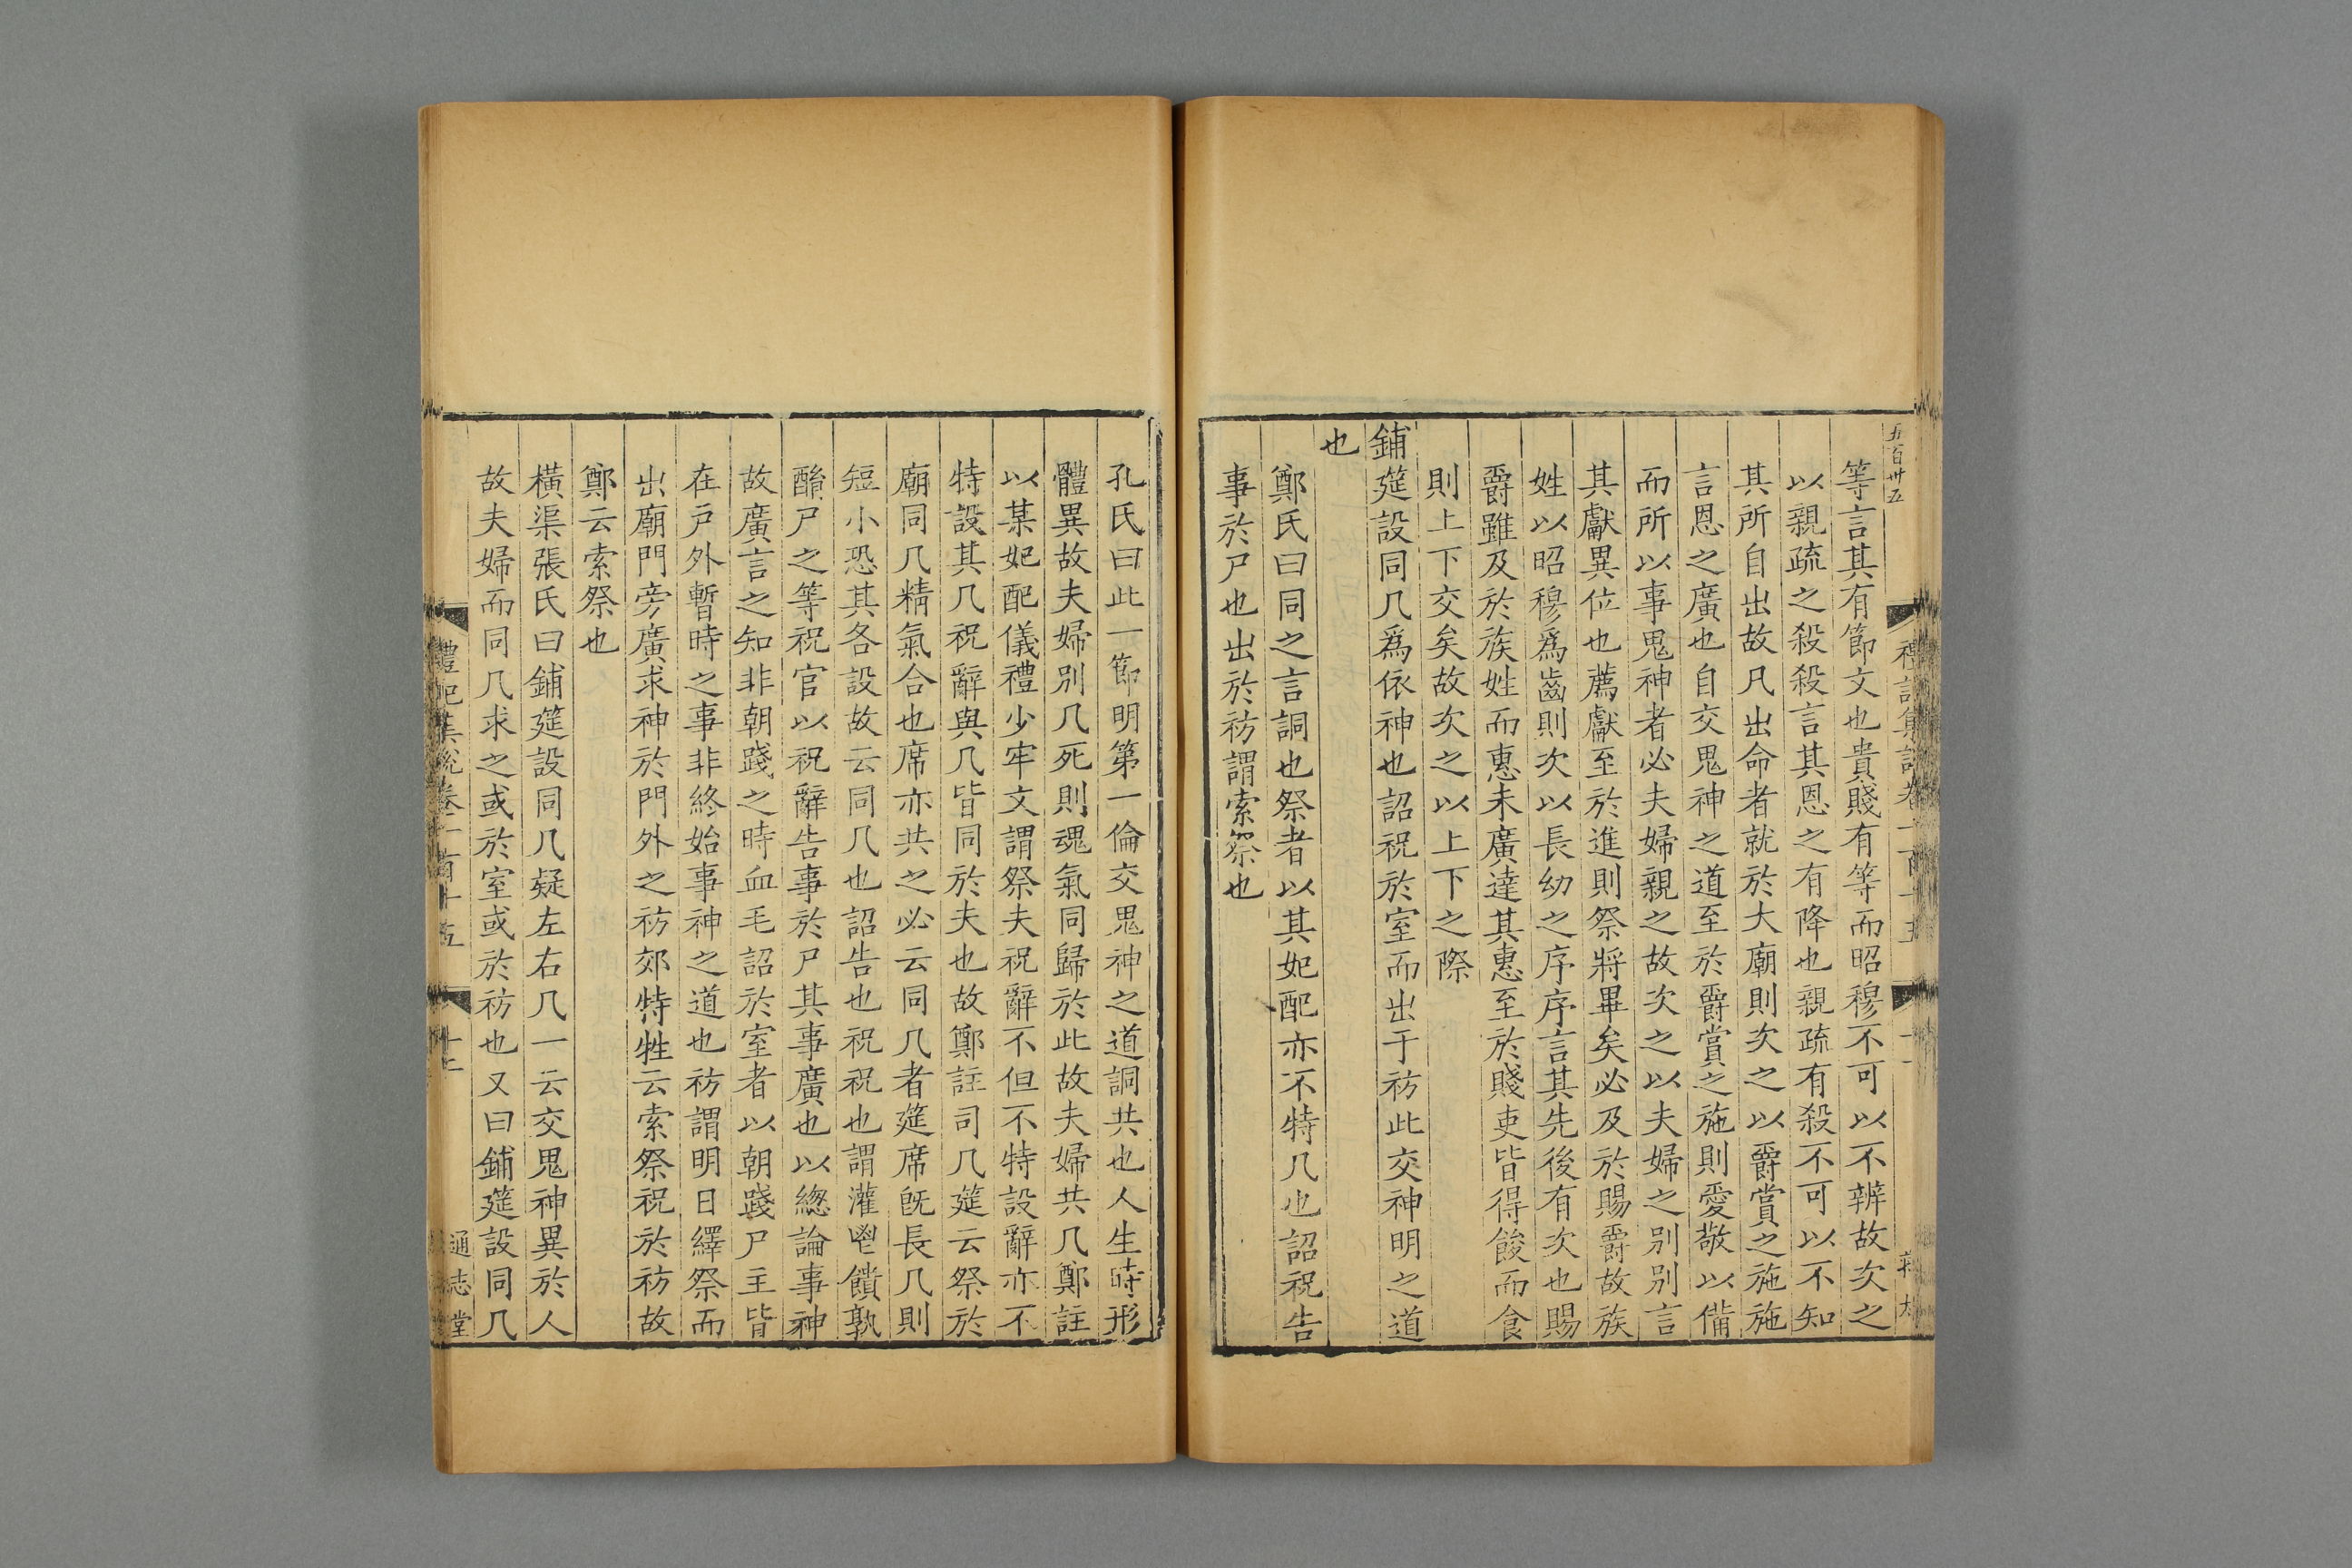 五百卅五
等言其有節文也貴賤有等而昭穆不可以不辨故次之
以親疏之殺殺言其恩之有降也親疏有殺不可以不知
其所自出故凡出命者就於大廟則次之以爵賞之施施
言恩之廣也自交鬼神之道至於爵賞之施則愛敬以備
而所以事鬼神者必夫婦親之故次之以夫婦之別別言
其獻異位也薦獻至於進則祭將畢矣必及於賜爵故族
姓以昭穆爲齒則次以長幼之序序言其先後有次也賜
爵雖及於族姓而惠未廣達其惠至於賤吏皆得餕而食
則上下交矣故次之以上下之際
鋪筵設同几爲依神也詔祝於室而出于祊此交神明之道
也
鄭氏曰同之言詷也祭者以其妃配亦不特几也詔祝告
事於尸也出於祊謂索祭也
孔氏曰此一節明第一倫交鬼神之道詷共也人生時形
體異故夫婦別几死則魂氣同歸於此故夫婦共几鄭註
以某妃配儀禮少牢文謂祭夫祝辭不但不特設辭亦不
特設其几祝辭與几皆同於夫也故鄭註司几筵云祭於
廟同几精氣合也席亦共之必云同几者筵席旣長几則
短小恐其各設故云同几也詔告也祝祝也謂灌鬯饋孰
酳尸之等祝官以祝辭告事於尸其事廣也以緫論事神
故廣言之知非朝踐之時血毛詔於室者以朝踐尸主皆
在戸外暫時之事非終始事神之道也祊謂明日繹祭而
出廟門旁廣求神於門外之祊郊特牲云索祭祝於祊故
鄭云索祭也
橫渠張氏曰鋪筵設同几疑左右几一云交鬼神異於人
故夫婦而同几求之或於室或於祊也又曰鋪筵設同几
禮記集說卷一百十五
通志堂